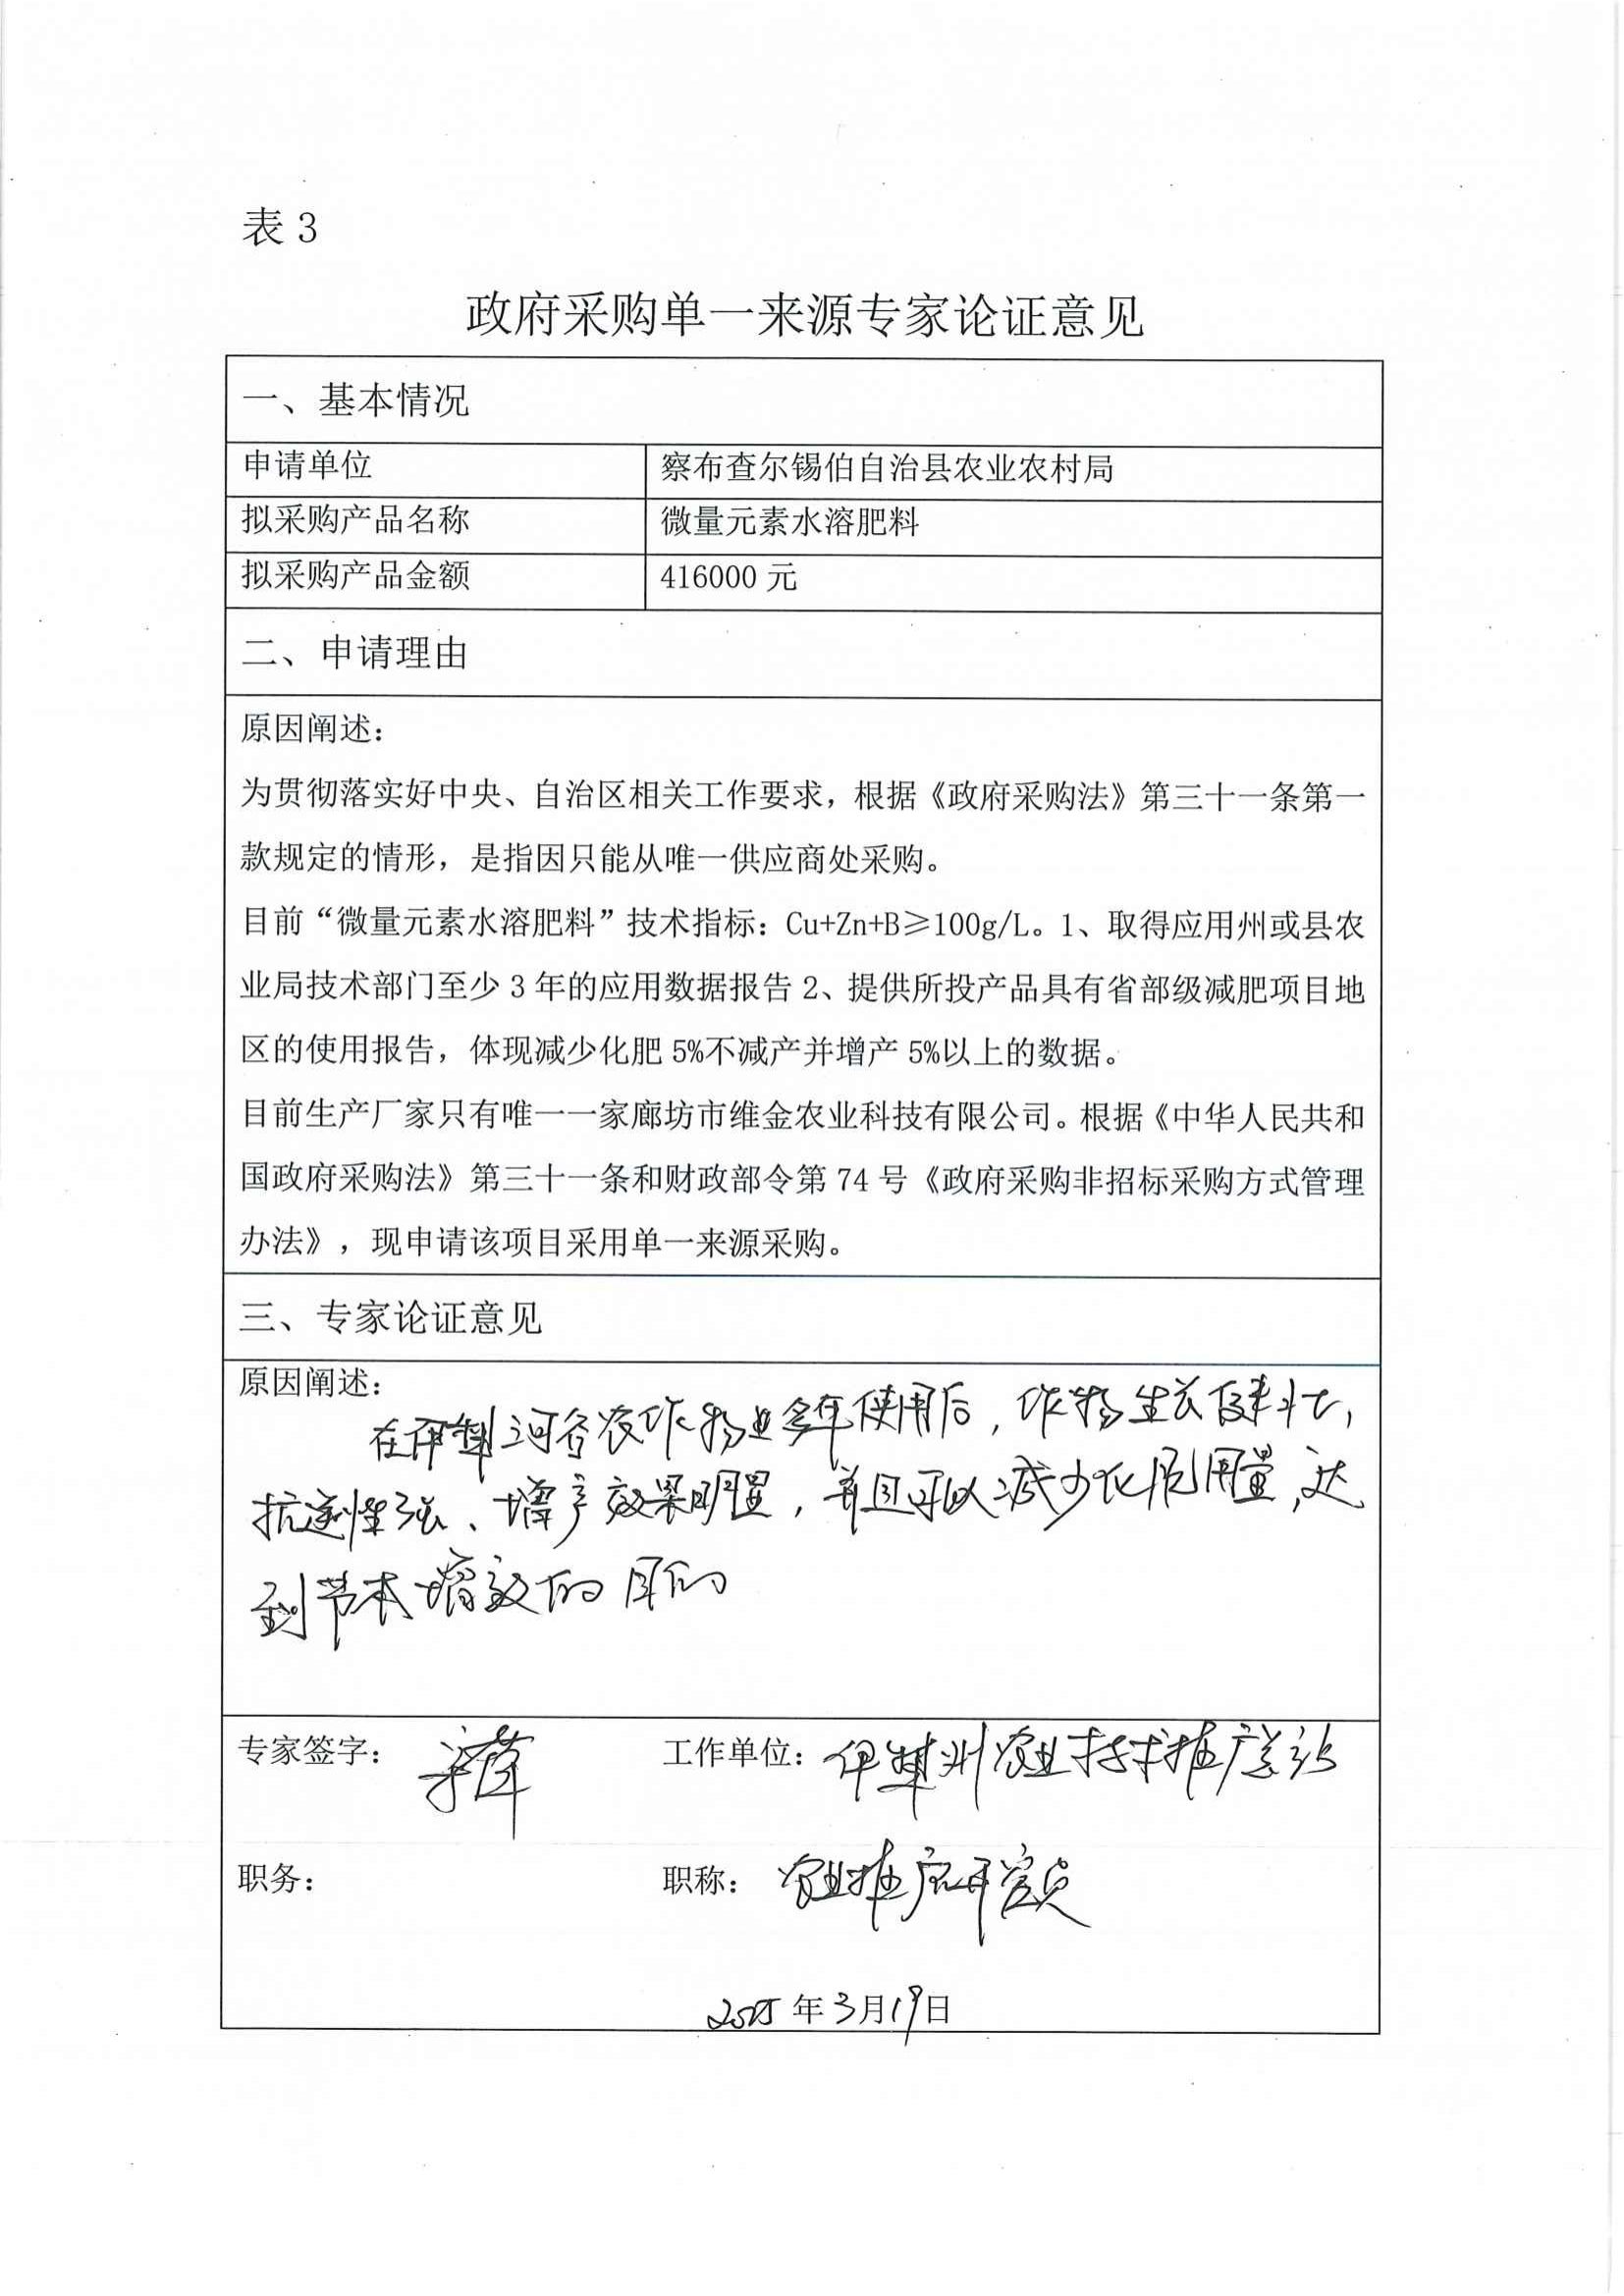 表 3
政府采购单一来源专家论证意见
一、基本情况
申请单位 察布查尔锡伯自治县农业农村局
拟采购产品名称 微量元素水溶肥料
拟采购产品金额 416000 元
二、申请理由
原因阐述：
为贯彻落实好中央、自治区相关工作要求，根据《政府采购法》第三十一条第一
款规定的情形，是指因只能从唯一供应商处采购。
目前“微量元素水溶肥料”技术指标：Cu+Zn+B≥100g/L。1、取得应用州或县农
业局技术部门至少 3 年的应用数据报告 2、提供所投产品具有省部级减肥项目地
区的使用报告，体现减少化肥 5%不减产并增产 5%以上的数据。
目前生产厂家只有唯一一家廊坊市维金农业科技有限公司。根据《中华人民共和
国政府采购法》第三十一条和财政部令第 74 号《政府采购非招标采购方式管理
办法》，现申请该项目采用单一来源采购。
三、专家论证意见
原因阐述：
在伊犁河谷农作物上多年使用后，作物生长健壮，
抗逆性强、增产效果明显，并且可以减少化肥用量，达
到节本增效的目的
专家签字： 工作单位：伊犁州农业技术推广总站
职务： 职称：农业推广研究员
2025 年 3 月 19 日